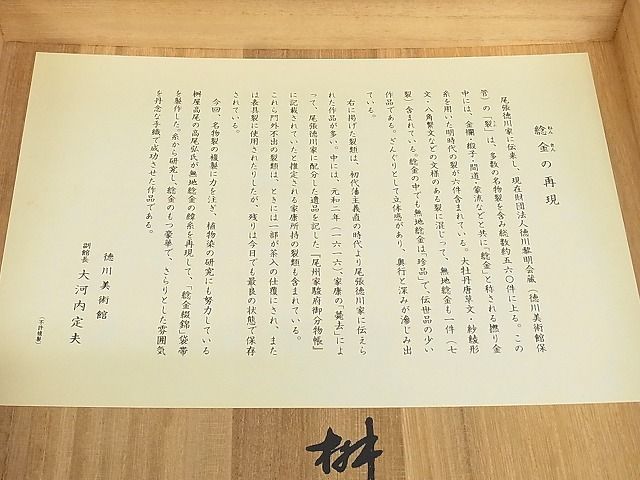 ねん きん
稔金の再現
尾張徳川家に伝来し、現在財団法人徳川黎明会蔵（徳川美術館保
管）の「裂」は、多数の名物裂を含み総数約五六〇件に上る。この
中には、金襴・緞子・間道・蒙流などと共に「稔金」と称される撚り金
糸を用いた明時代の裂が六件含まれている。大牡丹唐草文・紗綾形
文・八角繋文などの文様のある裂に混じって、無地稔金も一件（七
裂）含まれている。稔金の中でも無地稔金は「珍品」で、伝世品の少い
作品である。ざんぐりとして立体感があり、奥行と深みが滲み出
ている。
右に掲げた裂類は、初代藩主義直の時代より尾張徳川家に伝えら
れた作品が多い。中には、元和二年（一六一六）、家康の「薨去」によ
って、尾張徳川家に配分した遺品を記した『尾州家駿府御分物帳』
に記載されていたと推定される家康所持の裂類も含まれている。
これら門外不出の裂類は、ときには一部が茶入の仕覆にされ、また
は表具裂に使用されたりしたが、残りは今日でも最良の状態で保存
されている。
今回、名物裂の複製に力を注ぎ、植物染の研究にも努力している
桝屋高尾の高尾弘氏が無地稔金の緯糸を再現して、「稔金綴錦」袋帯
を製作した。糸から研究し、稔金のもつ豪華で、さらりとした雰囲気
を丹念な手織で成功させた作品である。
徳川美術館
副館長 大河内定夫
（不許複製）
桝